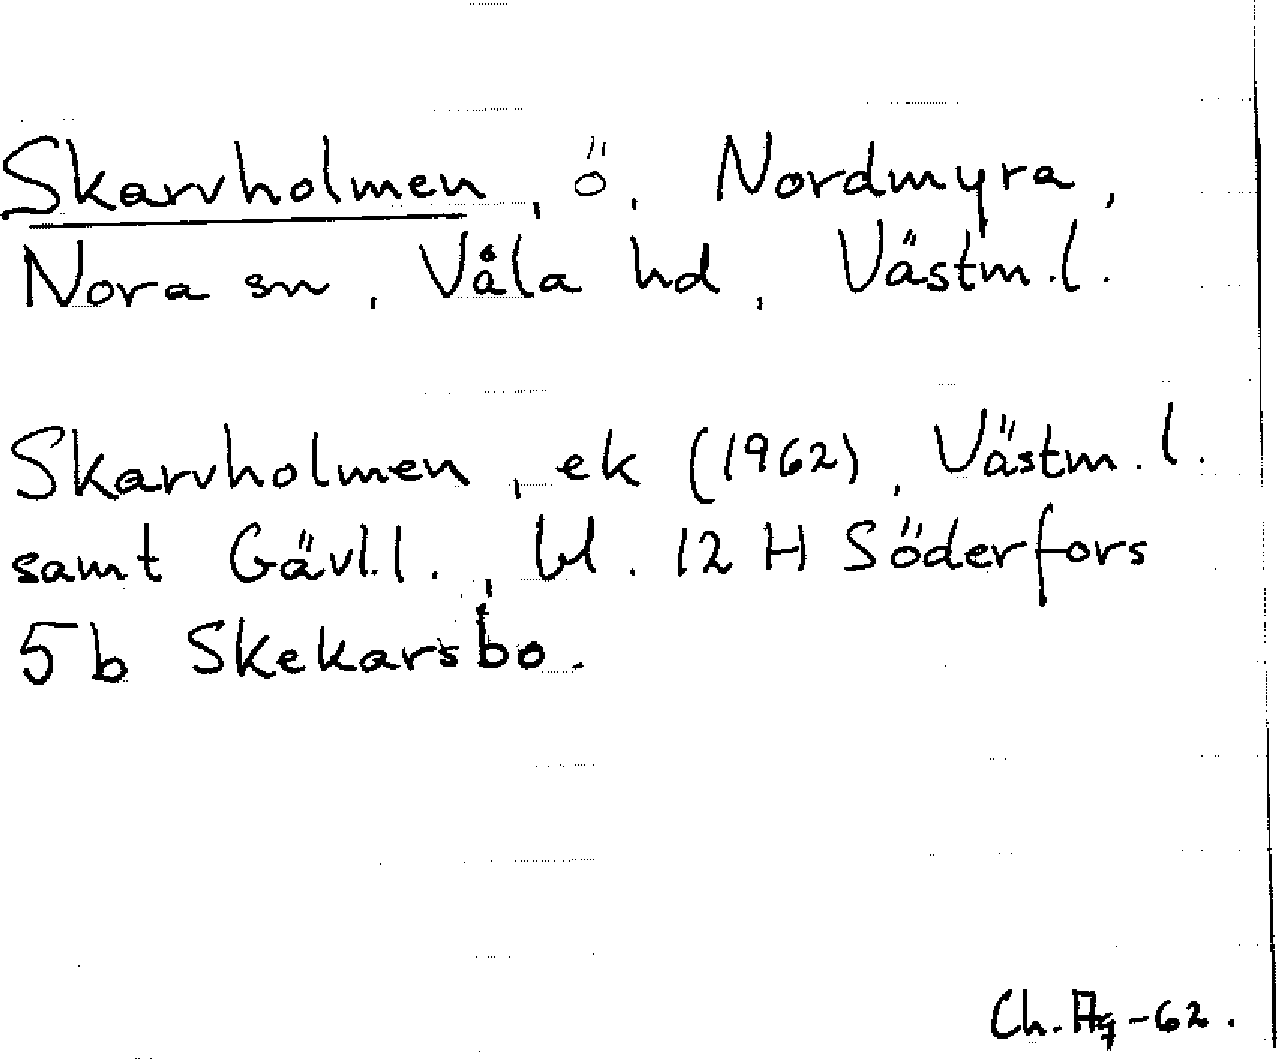 Skarvholmen, ö, Nordmyra,
Nora sn, Våla hd, Västm.l.
Skarvholmen, ek (1962), Västm.l.
samt Gävl.l., bl. 12 H Söderfors
5b Skekarsbo.
Ch. -62.